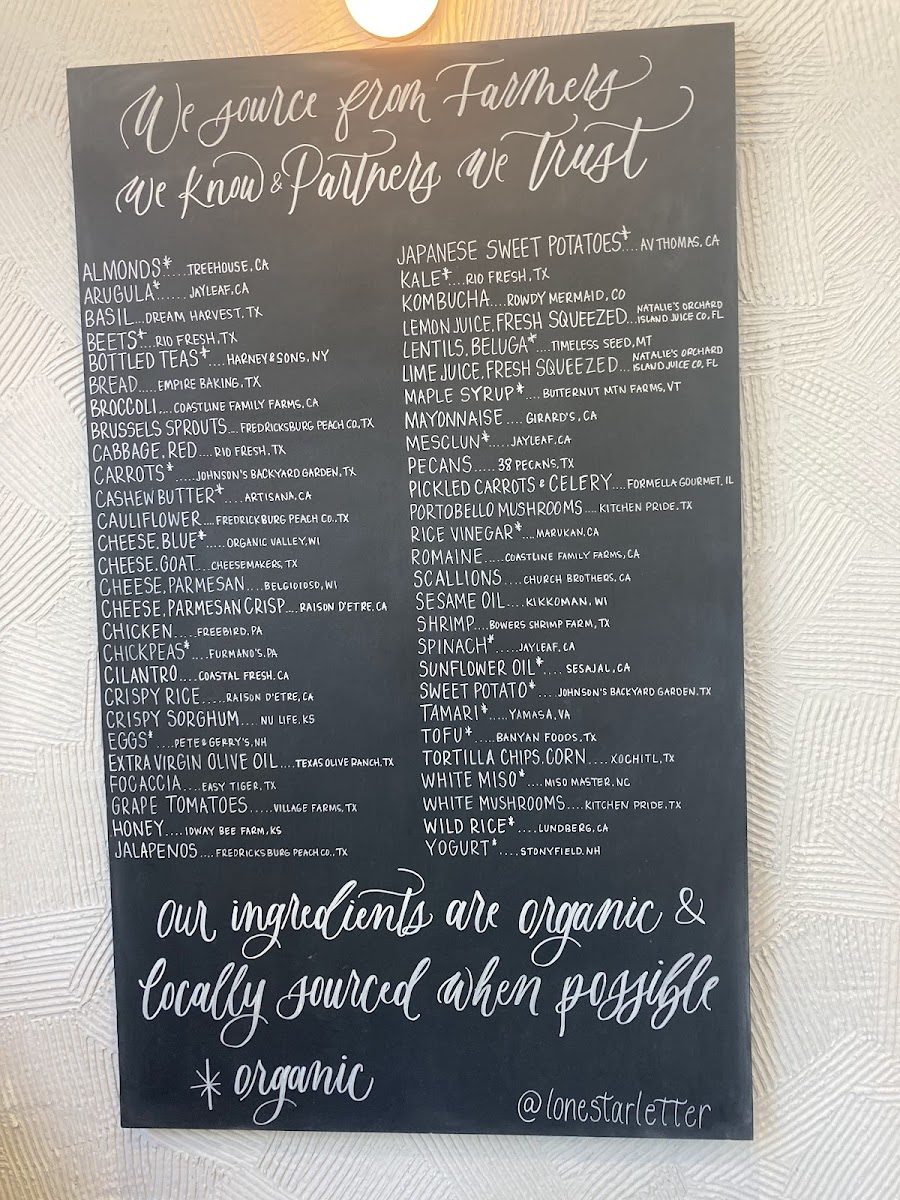 We source from Farmers
we know & Partners we trust
ALMONDS*.....TREEHOUSE, CA
ARUGULA*......JAYLEAF, CA
BASIL...DREAM HARVEST, TX
BEETS*...RIO FRESH, TX
BOTTLED TEAS*....HARNEY & SONS, NY
BREAD.....EMPIRE BAKING, TX
BROCCOLI....COASTLINE FAMILY FARMS, CA
BRUSSELS SPROUTS....FREDRICKSBURG PEACH CO, TX
CABBAGE, RED....RIO FRESH, TX
CARROTS*.....JOHNSON'S BACKYARD GARDEN, TX
CASHEW BUTTER*....ARTISANA, CA
CAULIFLOWER....FREDRICKBURG PEACH CO., TX
CHEESE, BLUE*.....ORGANIC VALLEY, WI
CHEESE, GOAT....CHEESEMAKERS, TX
CHEESE, PARMESAN....BELGIOIOSO, WI
CHEESE, PARMESAN CRISP....RAISON D'ETRE, CA
CHICKEN.....FREEBIRD, PA
CHICKPEAS*....FURMANO'S, PA
CILANTRO....COASTAL FRESH, CA
CRISPY RICE.....RAISON D'ETRE, CA
CRISPY SORGHUM....NU LIFE, KS
EGGS*....PETE & GERRY'S, NH
EXTRA VIRGIN OLIVE OIL....TEXAS OLIVE RANCH, TX
FOCACCIA....EASY TIGER, TX
GRAPE TOMATOES.....VILLAGE FARMS, TX
HONEY....IOWAY BEE FARM, KS
JALAPENOS....FREDRICKSBURG PEACH CO., TX
JAPANESE SWEET POTATOES*....AV THOMAS, CA
KALE*....RIO FRESH, TX
KOMBUCHA....ROWDY MERMAID, CO
LEMON JUICE, FRESH SQUEEZED...NATALIE'S ORCHARD
ISLAND JUICE CO, FL
LENTILS, BELUGA*....TIMELESS SEED, MT
LIME JUICE, FRESH SQUEEZED....NATALIE'S ORCHARD
ISLAND JUICE CO, FL
MAPLE SYRUP*....BUTTERNUT MTN FARMS, VT
MAYONNAISE....GIRARD'S, CA
MESCLUN*.....JAYLEAF, CA
PECANS.....38 PECANS, TX
PICKLED CARROTS & CELERY....FORMELLA GOURMET, IL
PORTOBELLO MUSHROOMS....KITCHEN PRIDE, TX
RICE VINEGAR*....MARUKAN, CA
ROMAINE.....COASTLINE FAMILY FARMS, CA
SCALLIONS....CHURCH BROTHERS, CA
SESAME OIL....KIKKOMAN, WI
SHRIMP....BOWERS SHRIMP FARM, TX
SPINACH*.....JAYLEAF, CA
SUNFLOWER OIL*....SESAJAL, CA
SWEET POTATO*....JOHNSON'S BACKYARD GARDEN, TX
TAMARI*.....YAMASA, VA
TOFU*.....BANYAN FOODS, TX
TORTILLA CHIPS, CORN....XOCHITL, TX
WHITE MISO*....MISO MASTER, NC
WHITE MUSHROOMS....KITCHEN PRIDE, TX
WILD RICE*....LUNDBERG, CA
YOGURT*....STONYFIELD, NH
our ingredients are organic &
locally sourced when possible
* organic
@lonestarletter